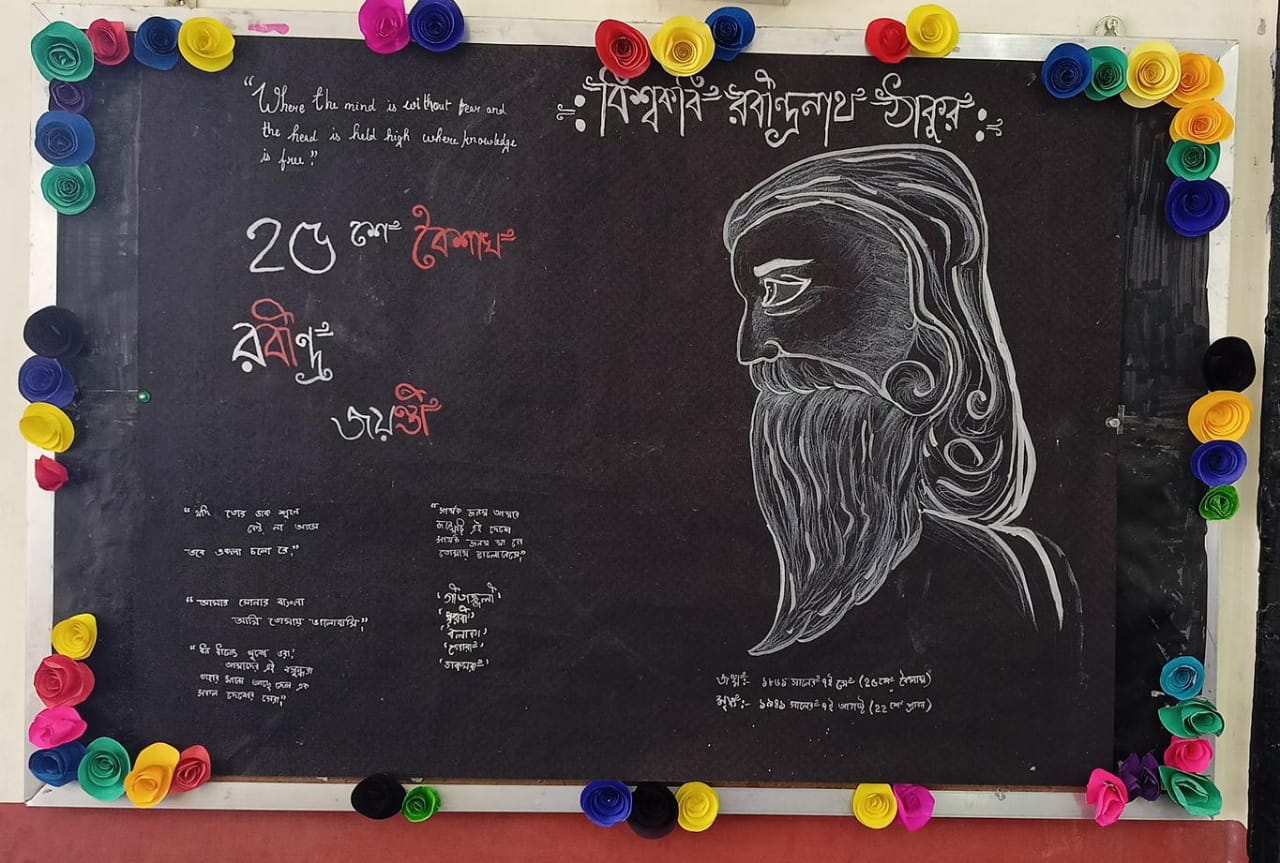 “Where the mind is without fear and
the head is held high where knowledge
is free”
বিশ্বকবি রবীন্দ্রনাথ ঠাকুর
২৫ শে বৈশাখ
রবীন্দ্র
জয়ন্তী
“যদি তোর ডাক শুনে
কেউ না আসে
তবে একলা চলো রে”
“আমার সোনার বাংলা
আমি তোমায় ভালোবাসি”
পুষ্পে ভরা,
আমাদের এই বসুন্ধরা
তাহার মাঝে আছে দেশ এক
সকল দেশের সেরা”
“সার্থক জনম আমার
জন্মেছি এই দেশে
সার্থক জনম মা গো
তোমায় ভালোবেসে”
‘গীতাঞ্জলী’
‘পূরবী’
‘বলাকা’
‘গোরা’
‘ডাকঘর’
জন্ম:- ১৮৬১ সালের ৭ই মে (২৫শে বৈশাখ)
মৃত্যু:- ১৯৪১ সালের ৭ই আগস্ট (২২ শে শ্রাবণ)